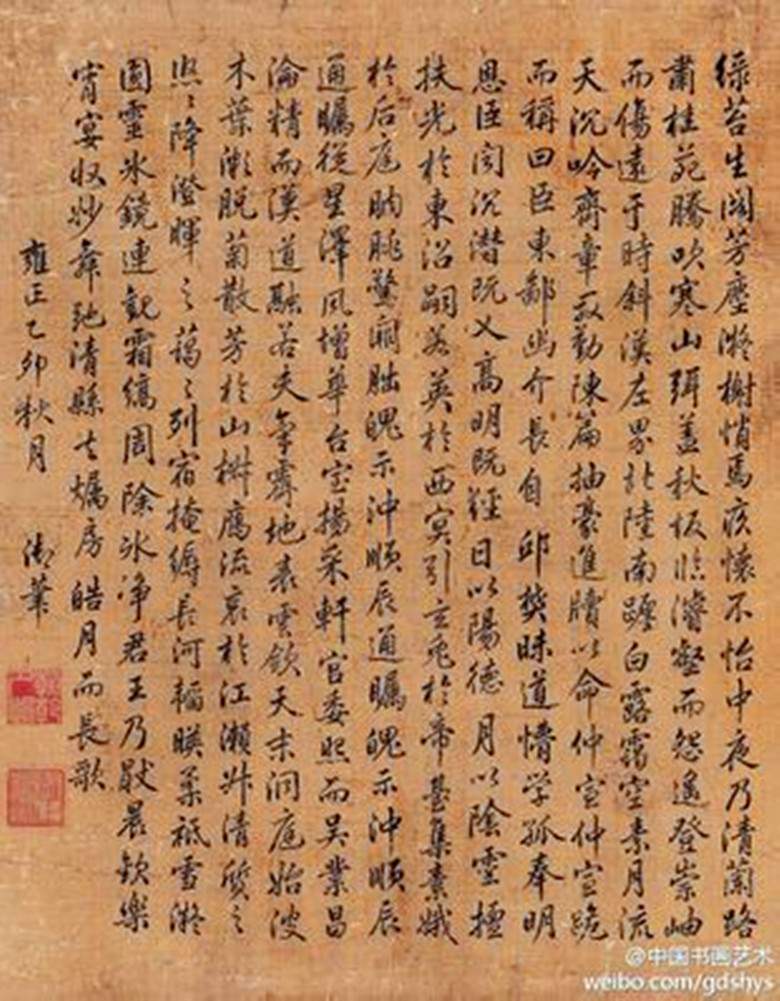 綠苔生閣芳塵凝榭悄焉疚懷不怡中夜乃清蘭路
肅桂苑騰吹寒山弭蓋秋坂臨濬壑而怨遙登崇岫
而傷遠于時斜漢左界北陸南躔白露靄空素月流
天沉吟齊章殷勤陳篇抽豪進牘以命仲宣仲宣跪
而稱曰臣東鄙幽介長自邱樊昧道懵學孤奉明
恩臣聞沉潛既义高明既經日以陽德月以陰靈擅
扶光於東沼嗣若英於西冥引玄兔於帝臺集素娥
於后庭朒朓警闕朏魄示沖順辰通矚魄示沖順辰
通矚從星澤風增華台室揚采軒宮委照而吳業昌
淪精而漢道融若夫氣霽地表雲斂天末洞庭始波
木葉漸脫菊散芳於山椒鴈流哀於江瀨升清質之
悠〻降澄輝之藹〻列宿掩縟長河韜映柔祇雪凝
圓靈冰鏡連觀霜縞周除冰淨君王乃厭晨歡樂
宵宴收妙舞弛清縣去燭房皓月而長歌
雍正乙卯秋月 御筆
@中国书画艺术
weibo.com/gdshys